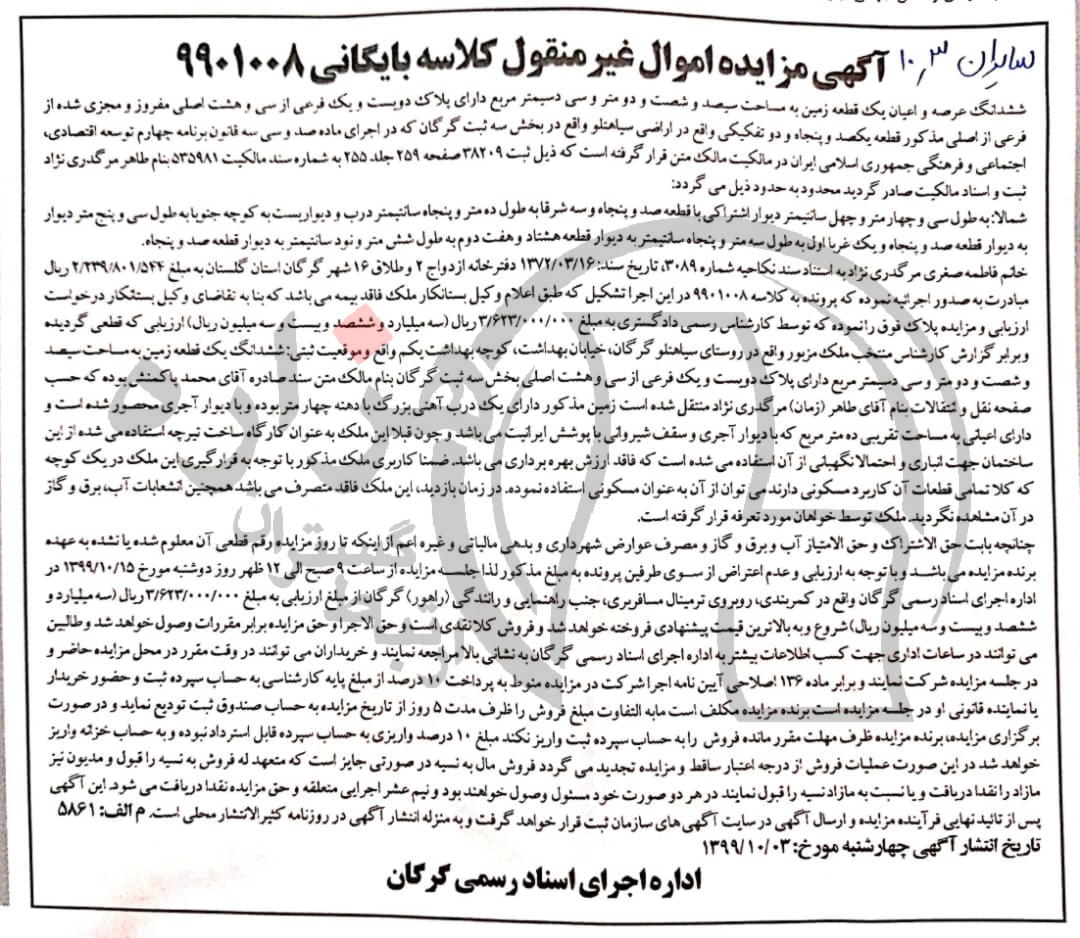 سایران ۱۰٫۳
آگهی مزایده اموال غیر منقول کلاسه بایگانی ۹۹۰۱۰۰۸
ششدانگ عرصه و اعیان یک قطعه زمین به مساحت سیصد و شصت و دو متر و سی دسیمتر مربع دارای پلاک دویست و یک فرعی از سی و هشت اصلی مفروز و مجزی شده از
فرعی از اصلی مذکور قطعه یکصد و پنجاه و دو تفکیکی واقع در اراضی سیاهتلو واقع در بخش سه ثبت گرگان که در اجرای ماده صد و سی سه قانون برنامه چهارم توسعه اقتصادی،
اجتماعی و فرهنگی جمهوری اسلامی ایران در مالکیت مالک متن قرار گرفته است که ذیل ثبت ۳۸۲۰۹ صفحه ۲۵۹ جلد ۲۵۵ به شماره سند مالکیت ۵۳۵۹۸۱ بنام طاهر مرگدری نژاد
ثبت و اسناد مالکیت صادر گردید محدود به حدود ذیل می گردد:
شمالا: به طول سی و چهار متر و چهل سانتیمتر دیوار اشتراکی با قطعه صد و پنجاه و سه شرقا به طول ده متر و پنجاه سانتیمتر درب و دیواریست به کوچه جنوبا به طول سی و پنج متر دیوار
به دیوار قطعه صد و پنجاه و یک غربا اول به طول سه متر و پنجاه سانتیمتر به دیوار قطعه هشتاد و هفت دوم به طول شش متر و نود سانتیمتر به دیوار قطعه صد و پنجاه.
خانم فاطمه صغری مرگدری نژاد به استناد سند نکاحیه شماره ۳۰۸۹، تاریخ سند: ۱۳۷۲/۰۳/۱۶ دفترخانه ازدواج ۲ و طلاق ۱۶ شهر گرگان استان گلستان به مبلغ ۲/۲۳۹/۸۰۱/۵۴۴ ریال
مبادرت به صدور اجرائیه نموده که پرونده به کلاسه ۹۹۰۱۰۰۸ در این اجرا تشکیل که طبق اعلام وکیل بستانکار ملک فاقد بیمه می باشد که بنا به تقاضای وکیل بستنکار درخواست
ارزیابی و مزایده پلاک فوق را نموده که توسط کارشناس رسمی دادگستری به مبلغ ۳/۶۲۳/۰۰۰/۰۰۰ ریال (سه میلیارد و ششصد و بیست و سه میلیون ریال) ارزیابی که قطعی گردیده
و برابر گزارش کارشناس منتخب ملک مزبور واقع در روستای سیاهتلو گرگان، خیابان بهداشت، کوچه بهداشت یکم واقع و موقعیت ثبتی: ششدانگ یک قطعه زمین به مساحت سیصد
و شصت و دو متر و سی دسیمتر مربع دارای پلاک دویست و یک فرعی از سی و هشت اصلی بخش سه ثبت گرگان بنام مالک متن سند صادره آقای محمد پاکمنش بوده که حسب
صفحه نقل و انتقالات بنام آقای طاهر (زمان) مرگدری نژاد منتقل شده است زمین مذکور دارای یک درب آهنی بزرگ با دهنه چهار متر بوده و با دیوار آجری محصور شده است و
دارای اعیانی به مساحت تقریبی ده متر مربع که با دیوار آجری و سقف شیروانی با پوشش ایرانیت می باشد و چون قبلا این ملک به عنوان کارگاه ساخت تیرچه استفاده می شده از این
ساختمان جهت انباری و احتمالا نگهبانی از آن استفاده می شده است که فاقد ارزش بهره برداری می باشد. ضمنا کاربری ملک مذکور با توجه به قرارگیری این ملک در یک کوچه
که کلا تمامی قطعات آن کاربرد مسکونی دارند می توان از آن به عنوان مسکونی استفاده نموده. در زمان بازدید، این ملک فاقد متصرف می باشد همچنین انشعابات آب، برق و گاز
در آن مشاهده نگردید. ملک توسط خواهان مورد تعرفه قرار گرفته است.
چنانچه بابت حق الاشتراک و حق الامتیاز آب و برق و گاز و مصرف عوارض شهرداری و بدهی مالیاتی و غیره اعم از اینکه تا روز مزایده رقم قطعی آن معلوم شده یا نشده به عهده
برنده مزایده می باشد و با توجه به ارزیابی و عدم اعتراض از سوی طرفین پرونده به مبلغ مذکور لذا جلسه مزایده از ساعت ۹ صبح الی ۱۲ ظهر روز دوشنبه مورخ ۱۳۹۹/۱۰/۱۵ در
اداره اجرای اسناد رسمی گرگان واقع در کمربندی، روبروی ترمینال مسافربری، جنب راهنمایی و رانندگی (راهور) گرگان از مبلغ ارزیابی به مبلغ ۳/۶۲۳/۰۰۰/۰۰۰ ریال (سه میلیارد و
ششصد و بیست و سه میلیون ریال) شروع و به بالاترین قیمت پیشنهادی فروخته خواهد شد و فروش کلا نقدی است و حق الاجرا و حق مزایده برابر مقررات وصول خواهد شد و طالبین
می توانند در ساعات اداری جهت کسب اطلاعات بیشتر به اداره اجرای اسناد رسمی گرگان به نشانی بالا مراجعه نمایند و خریداران می توانند در وقت مقرر در محل مزایده حاضر و
در جلسه مزایده شرکت نمایند و برابر ماده ۱۳۶ اصلاحی آیین نامه اجرا شرکت در مزایده منوط به پرداخت ۱۰ درصد از مبلغ پایه کارشناسی به حساب سپرده ثبت و حضور خریدار
یا نماینده قانونی او در جلسه مزایده است برنده مزایده مکلف است مابه التفاوت مبلغ فروش را ظرف مدت ۵ روز از تاریخ مزایده به حساب صندوق ثبت تودیع نماید و در صورت
برگزاری مزایده، برنده مزایده ظرف مهلت مقرر مانده فروش را به حساب سپرده ثبت واریز نکند مبلغ ۱۰ درصد واریزی به حساب سپرده قابل استرداد نبوده و به حساب خزانه واریز
خواهد شد در این صورت عملیات فروش از درجه اعتبار ساقط و مزایده تجدید می گردد فروش مال به نسیه در صورتی جایز است که متعهد له فروش به نسیه را قبول و مدیون نیز
مازاد را نقدا دریافت و یا نسبت به مازاد نسیه را قبول نمایند در هر دو صورت خود مسئول وصول خواهند بود و نیم عشر اجرایی متعلقه و حق مزایده نقدا دریافت می شود. این آگهی
پس از تائید نهایی فرآینده مزایده و ارسال آگهی در سایت آگهی های سازمان ثبت قرار خواهد گرفت و به منزله انتشار آگهی در روزنامه کثیرالانتشار محلی است. م الف: ۵۸۶۱
تاریخ انتشار آگهی چهارشنبه مورخ: ۱۳۹۹/۱۰/۰۳
اداره اجرای اسناد رسمی گرگان